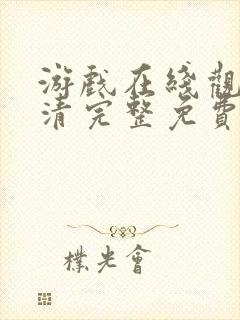 游戲在綫觀
清完整免費
樸光會